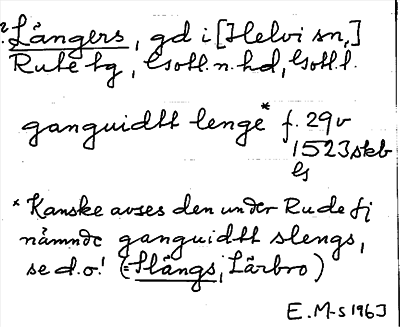 ?Långers, gd i [Hellvi sn,]
Rute tg, Gotl.n.hd, Gotl.l.
ganguidtt lenge* f. 29v
1523 skb
G
* Kanske avses den under Rude fj
nåmnde ganguidtt slengs,
se d.o.! (=Slängs, Lärbro)
E. M-s 1963